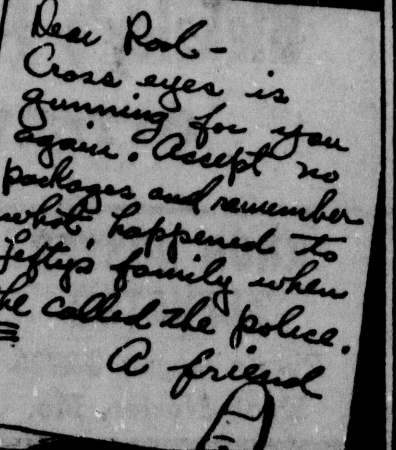 Dear Rod -
Cross eyes is
gunning for you
again. Accept no
packages and remember
what happened to
Lefty's family when
he called the police.
A friend